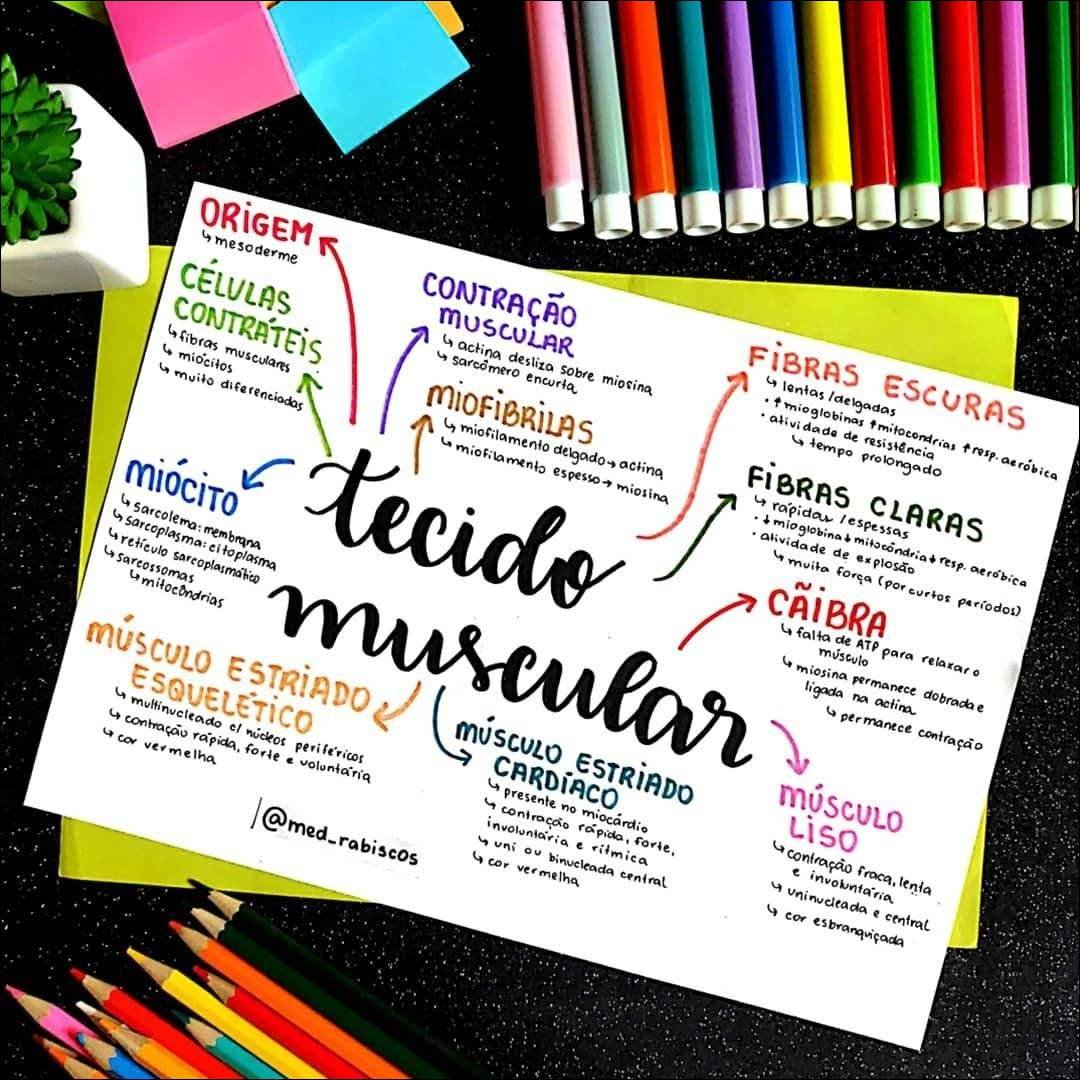 ORIGEM
↳ mesoderme
CÉLULAS
CONTRÁTEIS
↳ fibras musculares
↳ miócitos
↳ muito diferenciadas
CONTRAÇÃO
MUSCULAR
↳ actina desliza sobre miosina
↳ sarcômero encurta
MIOFIBRILAS
↳ miofilamento delgado → actina
↳ miofilamento espesso → miosina
FIBRAS ESCURAS
↳ lentas/delgadas
• ↑mioglobinas ↑mitocondrias ↑resp. aeróbica
• atividade de resistência
↳ tempo prolongado
FIBRAS CLARAS
↳ rápidas/espessas
• ↓mioglobina ↓mitocôndria ↓resp. aeróbica
• atividade de explosão
↳ muita força (por curtos períodos)
MIÓCITO
↳ sarcolema: membrana
↳ sarcoplasma: citoplasma
↳ retículo sarcoplasmático
↳ sarcossomas
↳ mitocôndrias
tecido
muscular
CÃIBRA
↳ falta de ATP para relaxar o
músculo
↳ miosina permanece dobrada e
ligada na actina
↳ permanece contração
MÚSCULO ESTRIADO
ESQUELÉTICO
↳ multinucleado c/ núcleos periféricos
↳ contração rápida, forte e voluntária
↳ cor vermelha
MÚSCULO ESTRIADO
CARDÍACO
↳ presente no miocárdio
↳ contração rápida, forte,
involuntária e rítmica
↳ uni ou binucleada central
↳ cor vermelha
MÚSCULO
LISO
↳ contração fraca, lenta
e involuntária
↳ uninucleada e central
↳ cor esbranquiçada
@med_rabiscos